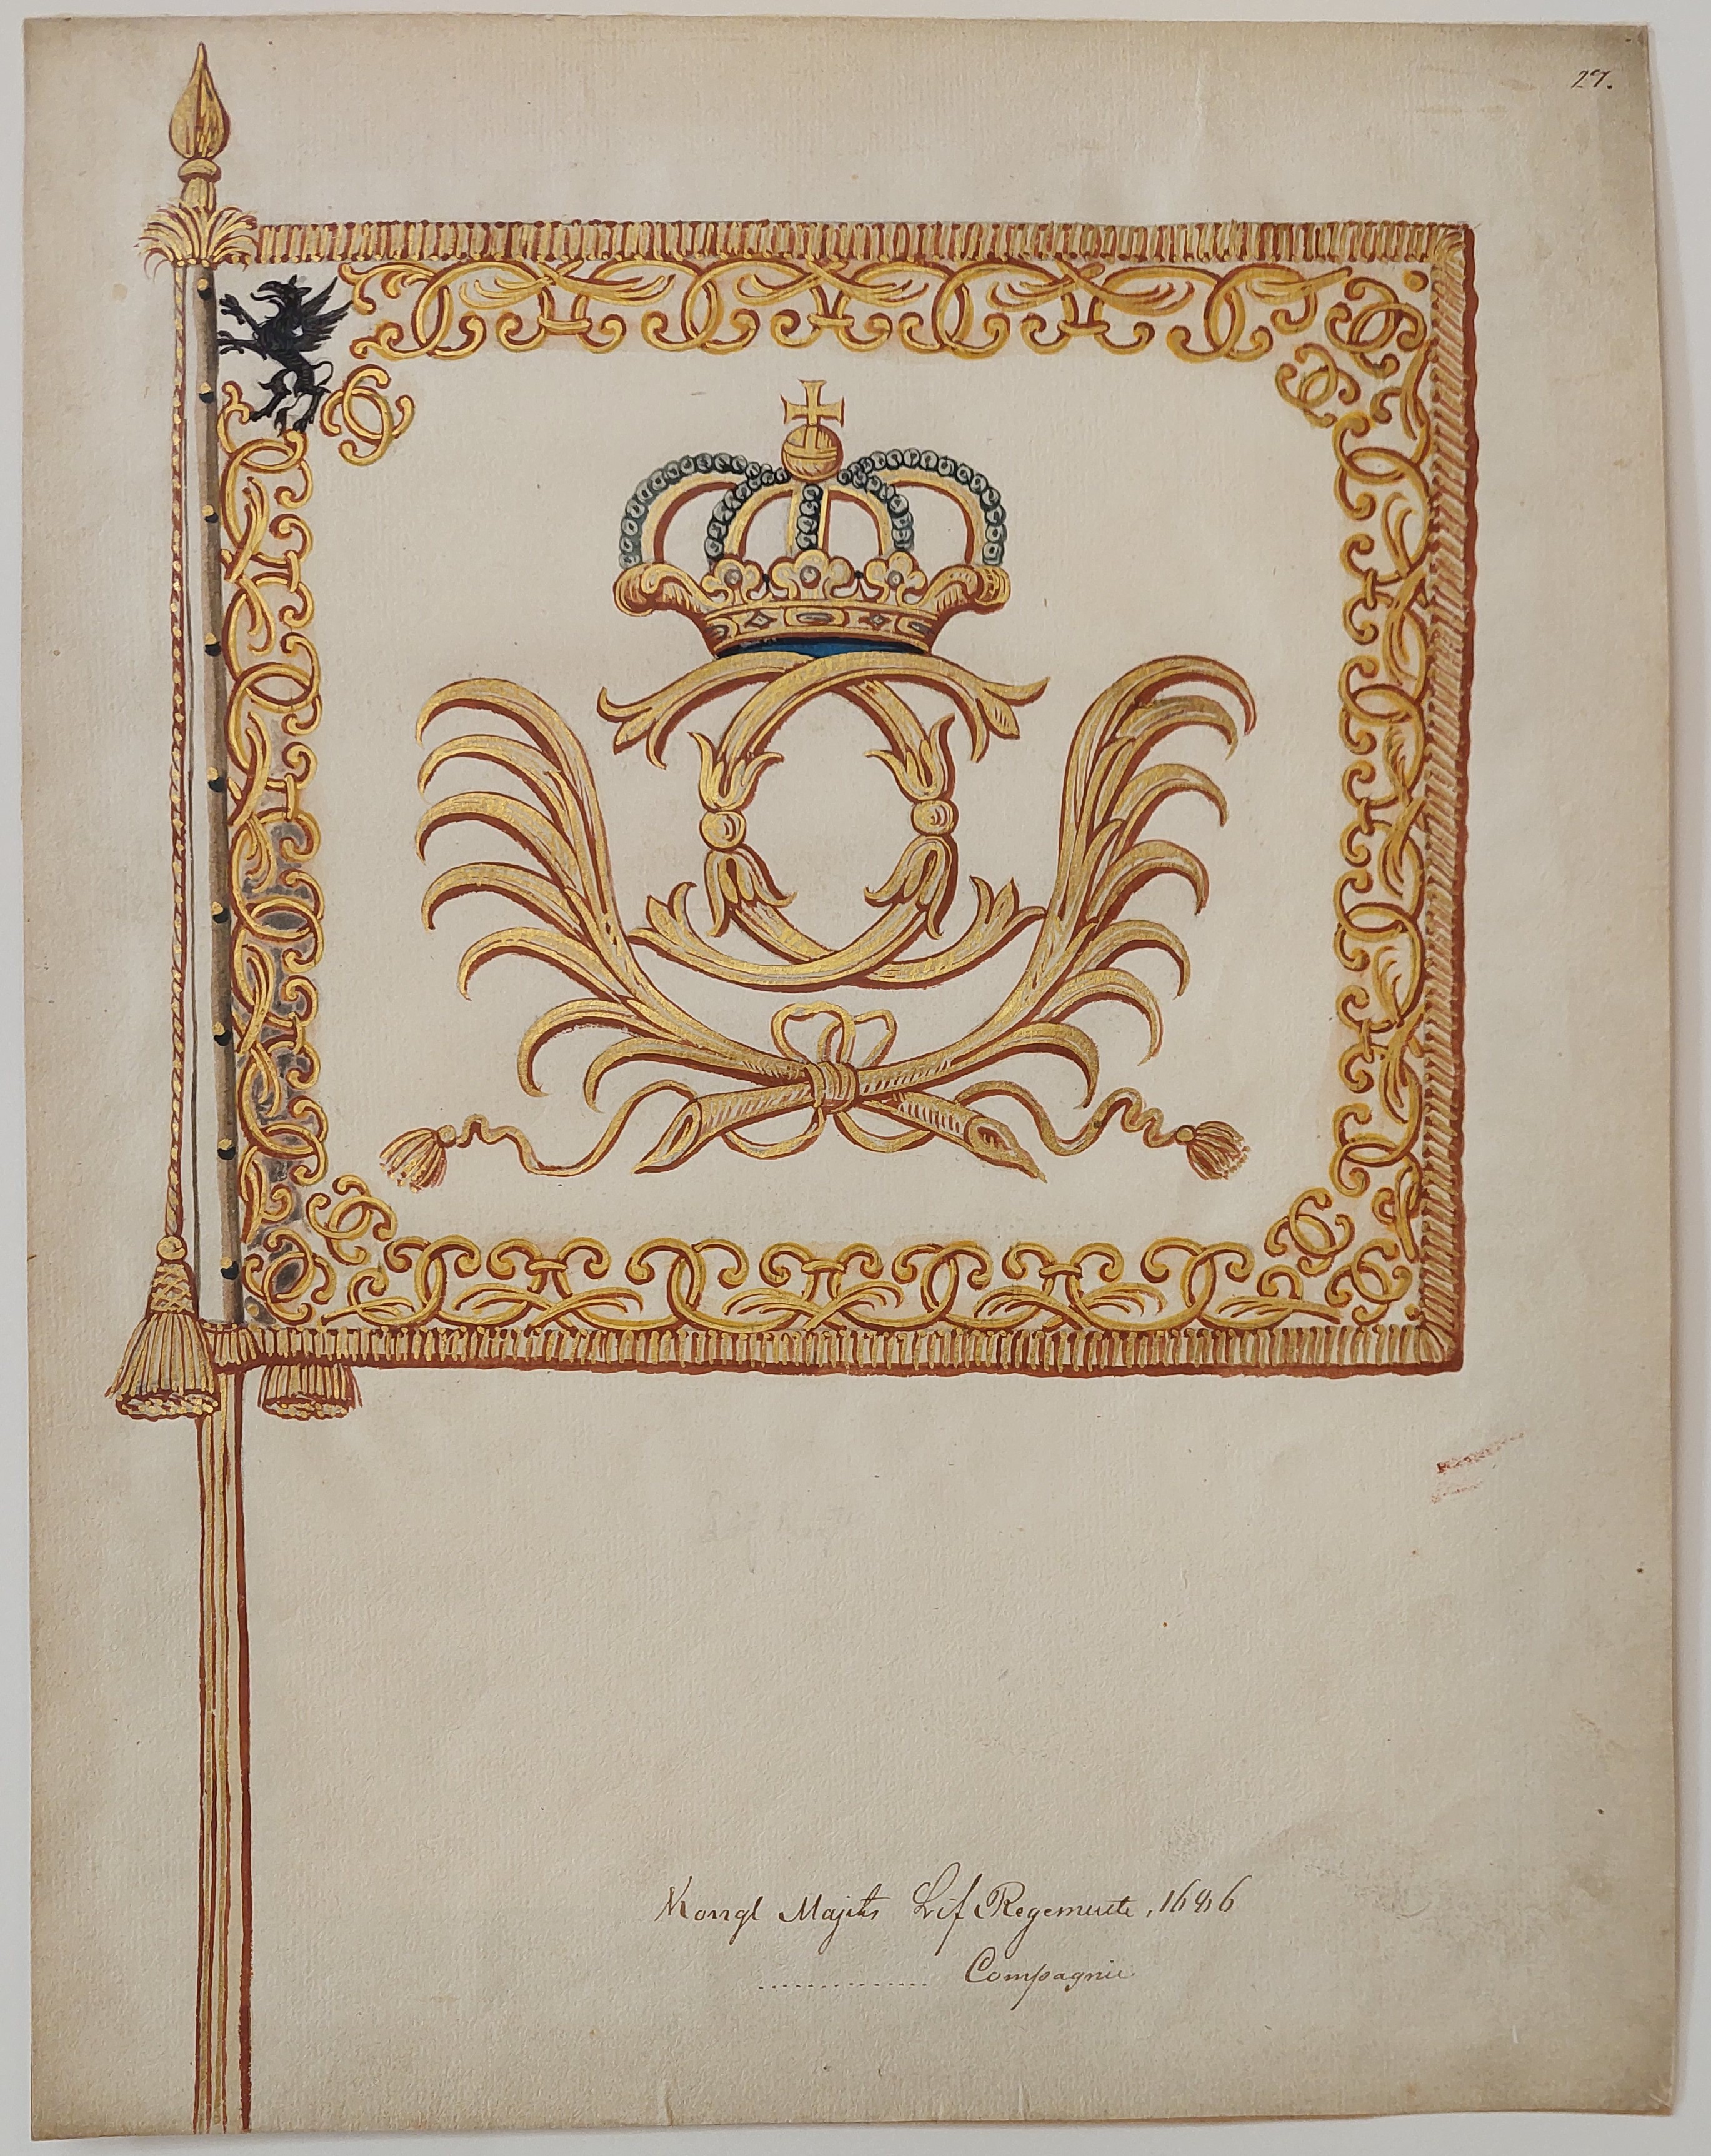 27.
Kongl Majets Lif Regemente, 1686
.............. Compagnie